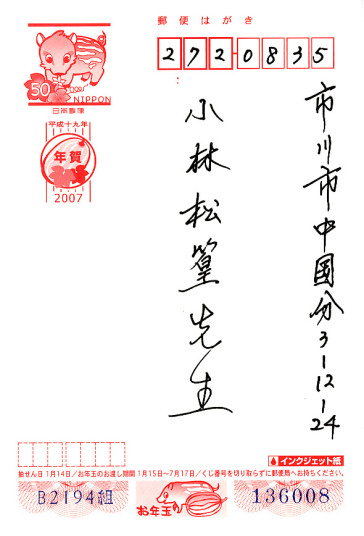 郵便はがき
50
NIPPON
日本郵便
平成十九年
年賀
2007
272-0835
市川市中国分3-12-24
小林松篁先生
インクジェット紙
抽せん日1月14日/お年玉のお渡し期間1月15日~7月17日/くじ番号を切り取らずに郵便局へお持ちください。
B2194組
お年玉
136008